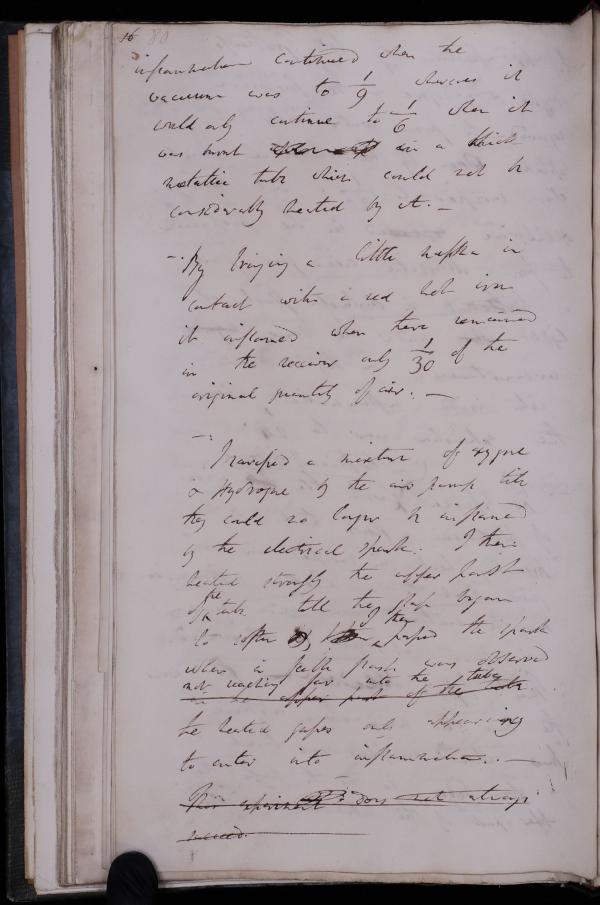 16 80
inflammation continued when the
vacuum was to 1/9 whereas it
would only continue to 1/6 when it
was burnt in a thick
metallic tube which could not be
considerably heated by it. —
— By bringing a little naptha in
contact with a red hot iron
it inflamed when there remained
in the receiver only 1/30 of the
original quantity of air. —
— I rarefied a mixture of oxygene
& Hydrogene by the air pump till
they could no longer be inflamed
by the electrical spark. I then
heated strongly the upper part
of the tube till the glass began
to soften I then passed the spark
when a feeble flash was observed
not reaching far into the tube
in the upper part of the tube
the heated gases only appearing
to enter into inflammation. —
This experiment does not always
succeed.